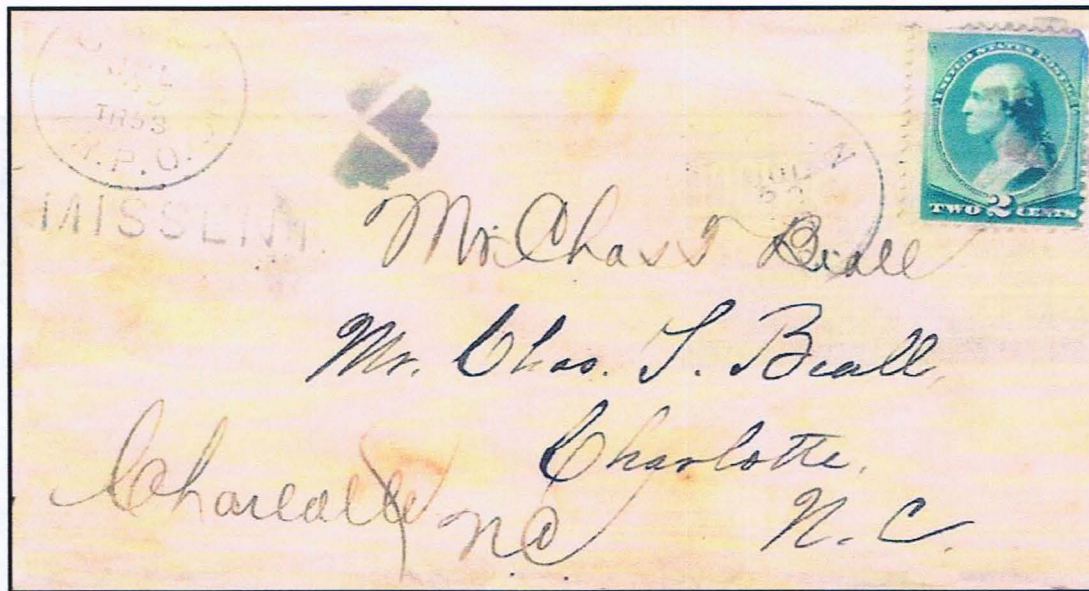 TR53
R.P.O.
MISSENT
JUL
UNITED STATES POSTAGE
TWO 2 CENTS
Mr. Chas T Beall
Mr. Chas. T. Beall,
Charlotte,
N. C.
N.C.